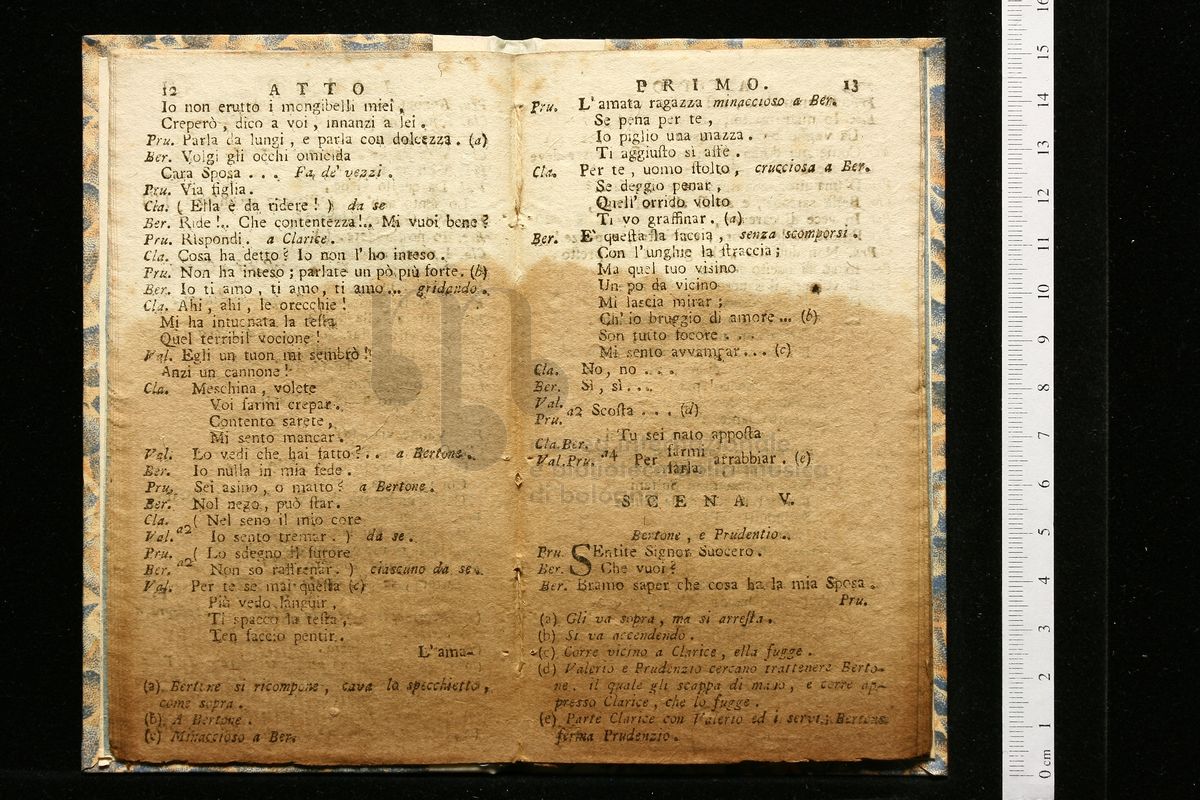 12 ATTO
Io non erutto i mongibelli miei,
Creperò, dico a voi, innanzi a lei.
Pru. Parla da lungi, e parla con dolcezza. (a)
Ber. Volgi gli occhi omicida
Cara Sposa ... Fa de' vezzi.
Pru. Via figlia.
Cla. ( Ella è da ridere! ) da se
Ber. Ride!.. Che contentezza!.. Mi vuoi bene?
Pru. Rispondi. a Clarice.
Cla. Cosa ha detto? Io non l'ho inteso.
Pru. Non ha inteso; parlate un pò più forte. (b)
Ber. Io ti amo, ti amo, ti amo... gridando.
Cla. Ahi, ahi, le orecchie!
Mi ha intuonata la testa
Quel terribil vocione!
Val. Egli un tuon mi sembrò!
Anzi un cannone!
Cla. Meschina, volete
Voi farmi crepar.
Contento sarete,
Mi sento mancar.
Val. Lo vedi che hai fatto?.. a Bertone.
Ber. Io nulla in mia fede.
Pru. Sei asino, o matto? a Bertone.
Ber. Nol nego, può star.
Cla. ( Nel seno il mio core
Val. a2 Io sento tremar. ) da se.
Pru. ( Lo sdegno il furore
Ber. a2 Non so raffrenar. ) ciascuno da se.
Val. Per te se mai questa (c)
Più vedo languir,
Ti spacco la testa,
Ten faccio pentir.
L'ama-
(a) Bertone si ricompone, cava lo specchietto,
come sopra.
(b) A Bertone.
(c) Minaccioso a Ber.
PRIMO. 13
Pru. L'amata ragazza minaccioso a Ber.
Se pena per te,
Io piglio una mazza.
Ti aggiusto si affe.
Cla. Per te, uomo stolto, crucciosa a Ber.
Se deggio penar,
Quell'orrido volto
Ti vo graffinar. (a)
Ber. E' questa la faccia, senza scomporsi.
Con l'unghie la straccia;
Ma quel tuo visino
Un po da vicino
Mi lascia mirar;
Ch'io bruggio di amore ... (b)
Son tutto focore ...
Mi sento avvampar... (c)
Cla. No, no ....
Ber. Sì, sì....
Val.
Pru. a2 Scosta .... (d)
Cla. Ber. Tu sei nato apposta
Val. Pru. a4 Per farmi arrabbiar. (e)
farla
SCENA V.
Bertone, e Prudentio.
Pru. SEntite Signor Suocero.
Ber. Che vuoi?
Ber. Bramo saper che cosa ha la mia Sposa.
Pru.
(a) Gli va sopra, ma si arresta.
(b) Si va accendendo.
(c) Corre vicino a Clarice, ella fugge.
(d) Valerio e Prudenzio cercano trattenere Berto-
ne, il quale gli scappa di mano, e corre ap-
presso Clarice, che lo fugge.
(e) Parte Clarice con Valerio ed i servi; Bertone
ferma Prudenzio.